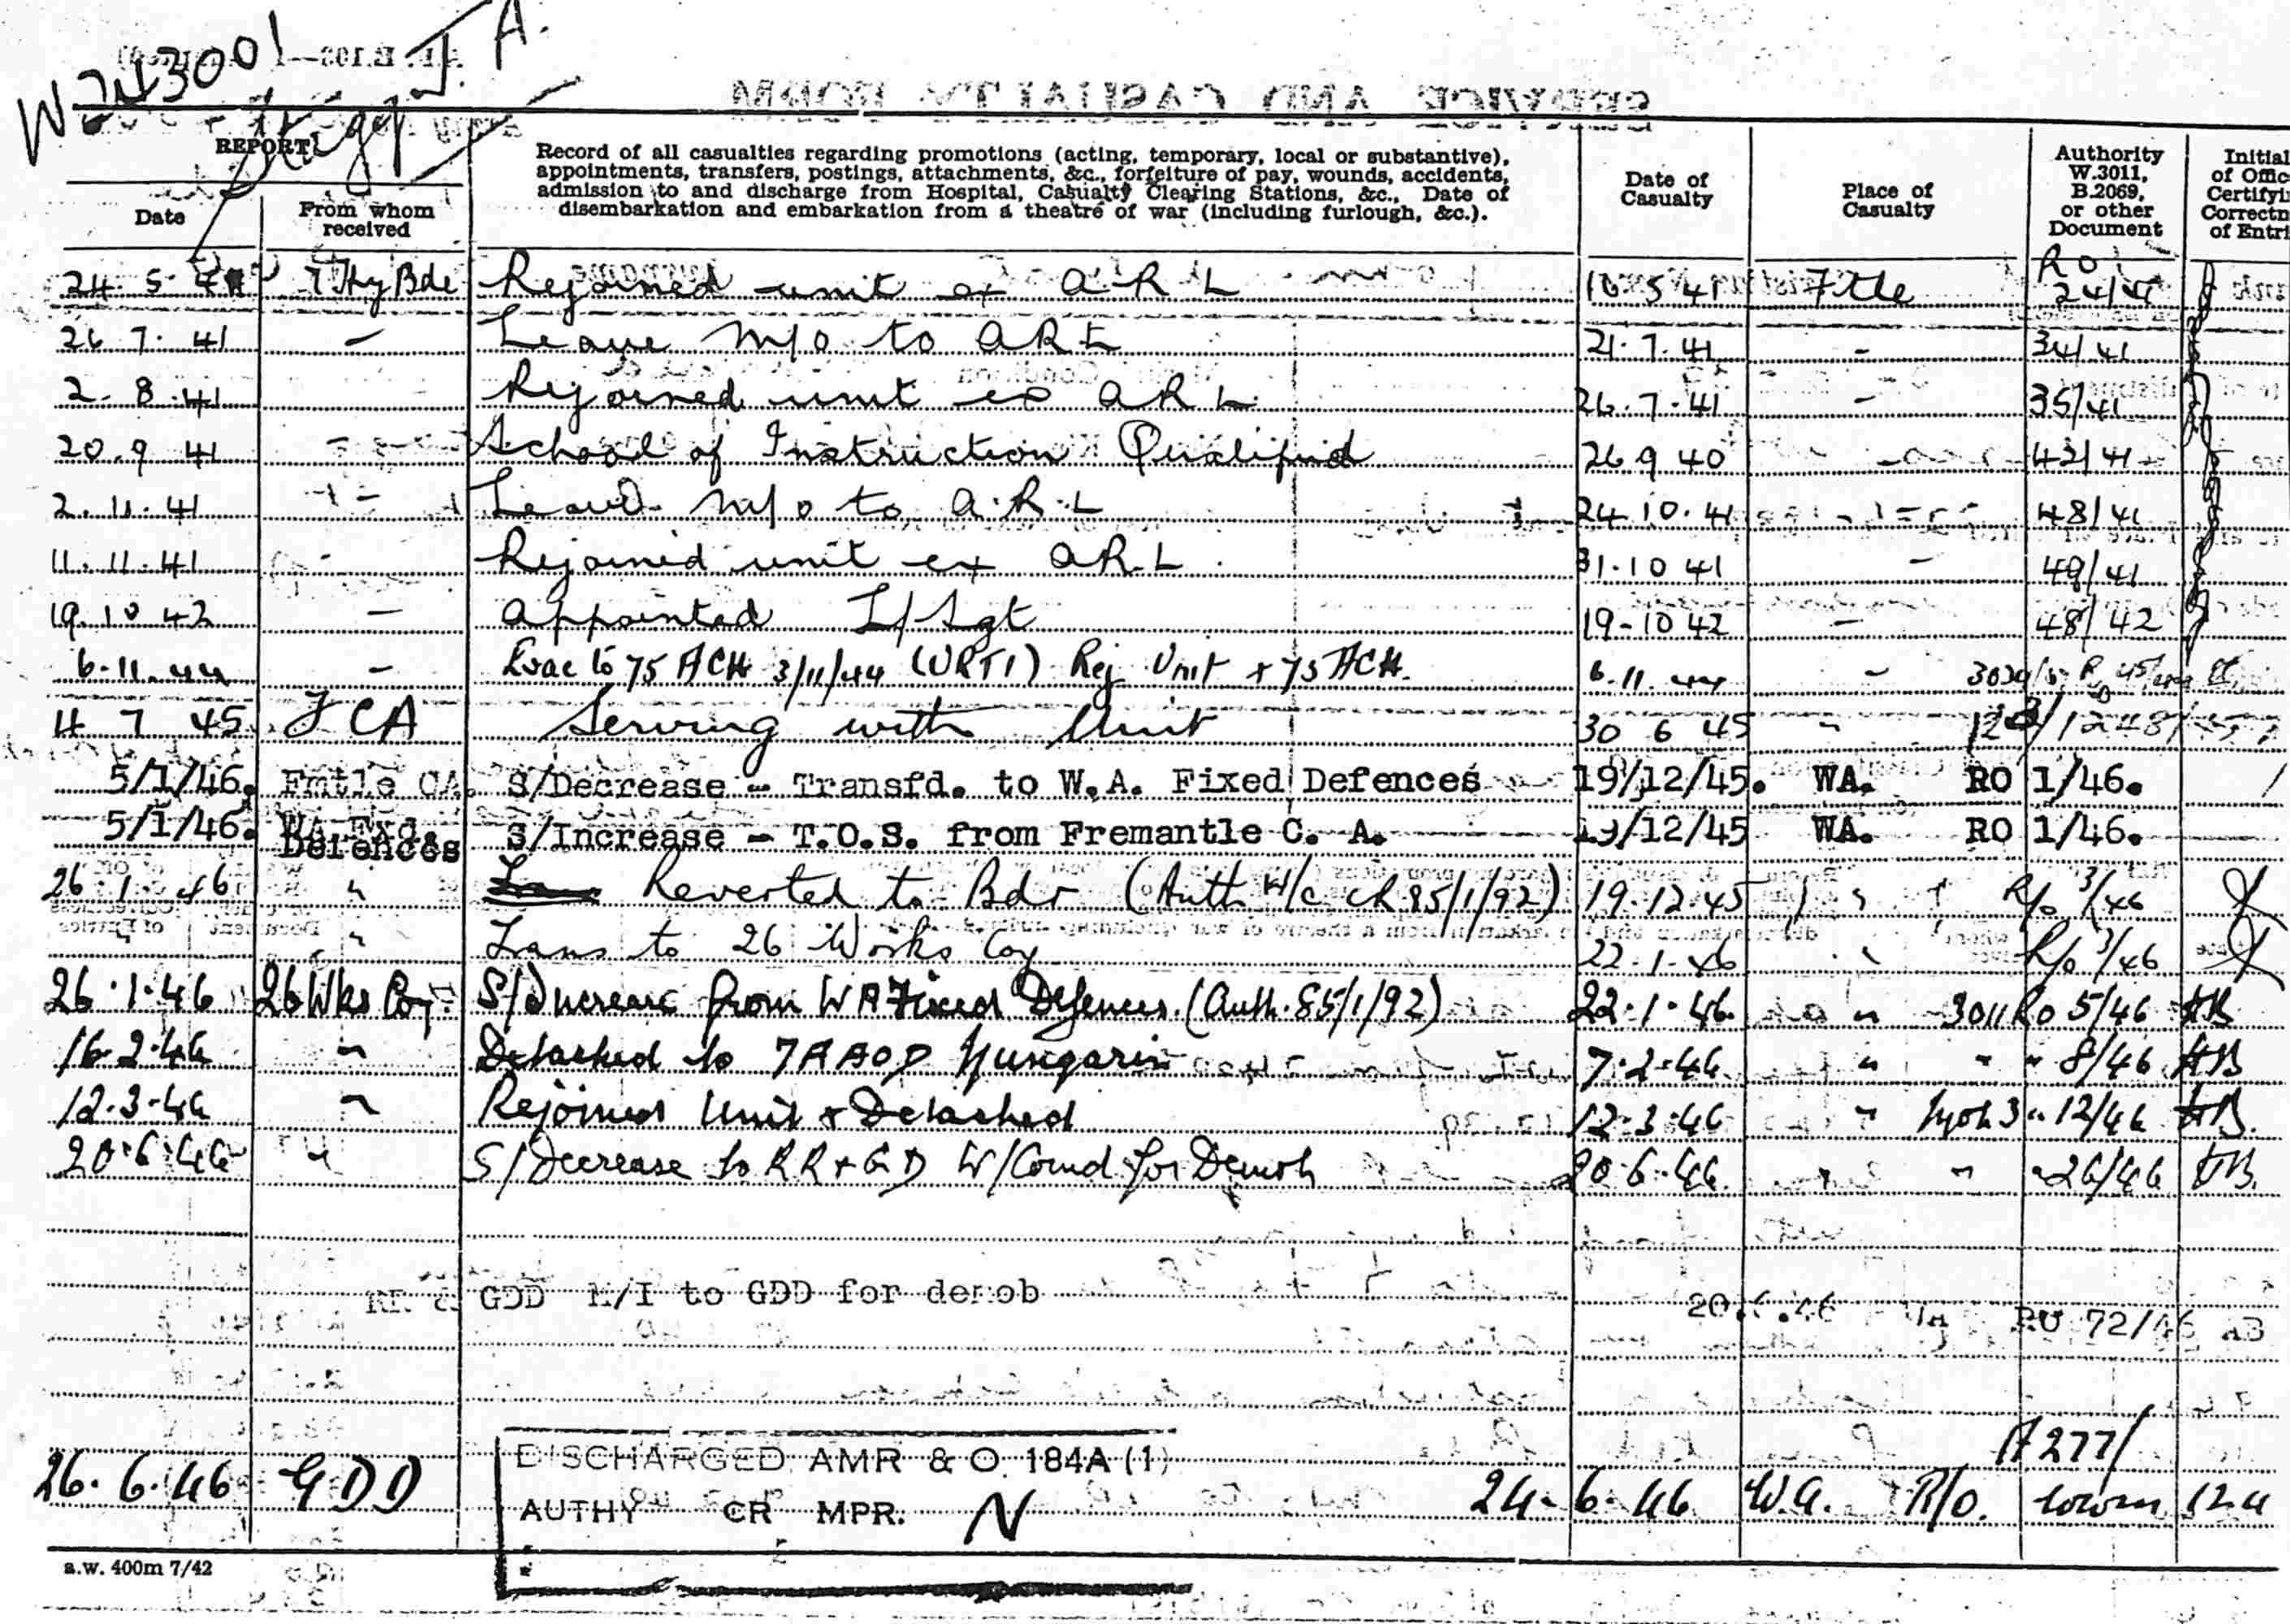 W243001
J. A.
REPORT
Date
From whom received
Record of all casualties regarding promotions (acting, temporary, local or substantive),
appointments, transfers, postings, attachments, &c., forfeiture of pay, wounds, accidents,
admission to and discharge from Hospital, Casualty Clearing Stations, &c., Date of
disembarkation and embarkation from a theatre of war (including furlough, &c.).
Date of Casualty
Place of Casualty
Authority W.3011, B.2069, or other Document
Initial of Offic Certifyi Correctn of Entri
24. 5. 41 7 Hy Bde Rejoined unit ex A R L 16 5 41 F'tle RO 24/41
26 7. 41 - Leave M/O to A R L 21. 7. 41 - 34/41
2. 8. 41 Rejoined unit ex A R L 26. 7. 41 - 35/41
20. 9 41 - School of Instruction Qualified 26 9 40 - 42/41
2. 11. 41 - Leave M/O to A. R. L 24 10. 41 - 48/41
11. 11. 41 - Rejoined unit ex A R. L 31. 10 41 - 49/41
19. 10 42 - Appointed L/Sgt 19-10 42 - 48/42
6-11. 44 - Evac to 75 ACH 3/11/44 (URTI) Rej Unit 75 ACH. 6. 11. 44 -
4 7 45 F C A Serving with Unit 30 6 45 "
5/1/46. Fmtle CA. S/Decrease - Transfd. to W.A. Fixed Defences 19/12/45. WA. RO 1/46.
5/1/46. WA Fxd. Defences S/Increase - T.O.S. from Fremantle C. A. 19/12/45 WA. RO 1/46.
26 1. 46 " Reverted to Bdr (Auth W/c CR 85/1/92) 19. 12. 45 " R/o 3/46
" Trans to 26 Works Coy 22. 1. 46 " R/o 3/46
26. 1. 46 26 Wks Coy. S/Increase from WA Fixed Defences (Auth. 85/1/92) 22. 1. 46 " 3011 Ro 5/46 AB
16. 2. 46 " Detached to 7 AAOD Nungarin 7. 2. 46 " " " 8/46 AB
12. 3. 46 " Rejoined Unit Detached 12. 3. 46 " " 12/46 AB.
20. 6. 46 " S/Decrease to RR & GD W/Comd for Demob 20. 6. 46 " " " 26/46 AB.
GDD M/I to GDD for demob 20.6.46 WA RO 72/46 AB
26. 6. 46 GDD DISCHARGED AMR & O 184A (1) 24. 6. 46 W.A. R/O. A277/
AUTHY CR MPR. N
a.w. 400m 7/42